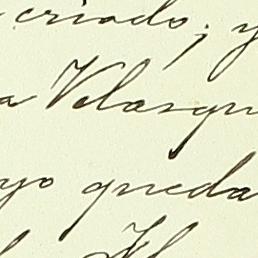 criado; y
a Velasqu
yo queda